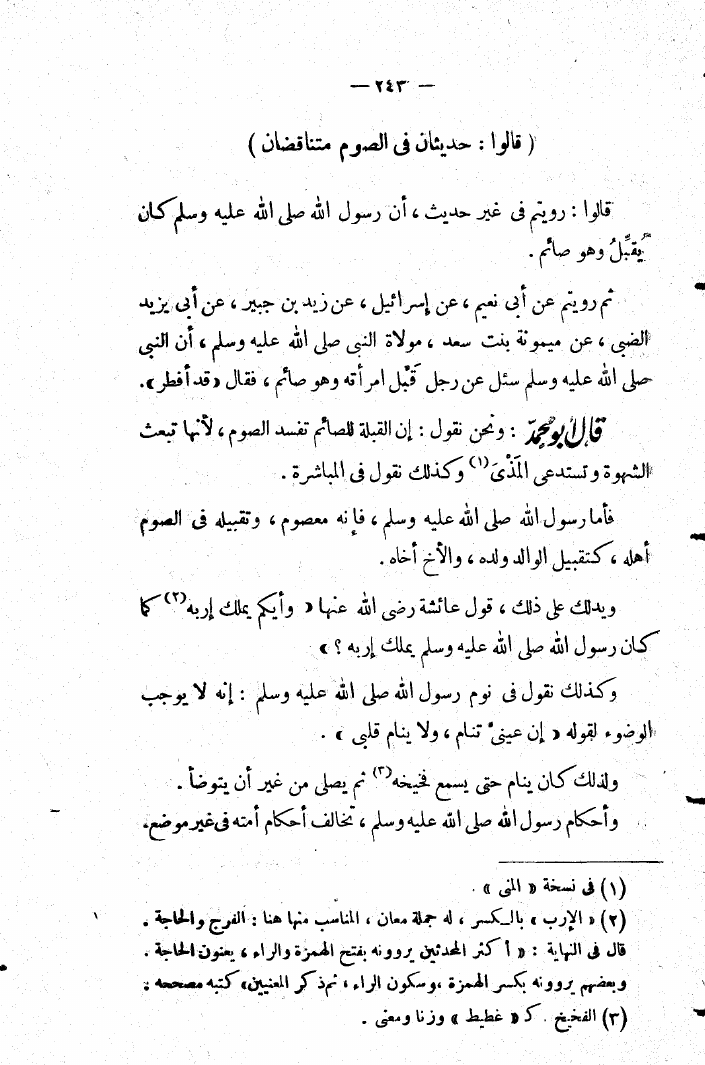 — ٢٤٣ —
( قالوا : حديثان فى الصوم متناقضان )
قالوا : رويتم فى غير حديث ، أن رسول الله صلى الله عليه وسلم كان
يُقَبِّلُ وهو صائم .
ثم رويتم عن أبى نعيم ، عن إسرائيل ، عن زيد بن جبير ، عن أبى يزيد
الضبى ، عن ميمونة بنت سعد ، مولاة النبى صلى الله عليه وسلم ، أن النبى
صلى الله عليه وسلم سئل عن رجل قَبَّل امرأته وهو صائم ، فقال « قد أفطر » .
قال أبو محمد : ونحن نقول : إن القبلة للصائم تفسد الصوم ، لأنها تبعث
الشهوة وتستدعى المَذْىَ (١) وكذلك نقول فى المباشرة .
فأما رسول الله صلى الله عليه وسلم ، فإنه معصوم ، وتقبيله فى الصوم
أهله ، كتقبيل الوالد ولده ، والأخ أخاه .
ويدلك على ذلك ، قول عائشة رضى الله عنها « وأيكم يملك إربه (٢) كما
كان رسول الله صلى الله عليه وسلم يملك إربه ؟ »
وكذلك نقول فى نوم رسول الله صلى الله عليه وسلم : إنه لا يوجب
الوضوء لقوله « إن عينىَّ تنام ، ولا ينام قلبى » .
ولذلك كان ينام حتى يسمع فخيخه (٣) ثم يصلى من غير أن يتوضأ .
وأحكام رسول الله صلى الله عليه وسلم ، تخالف أحكام أمته فى غير موضع .
(١) فى نسخة « المنى » .
(٢) « الإرب » بالكسر ، له جملة معان ، المناسب منها هنا : الفرج والحاجة .
قال فى النهاية : « أكثر المحدثين يروونه بفتح الهمزة والراء ، يعنون الحاجة .
وبعضهم يروونه بكسر الهمزة ، وسكون الراء ، ثم ذكر المعنيين » كتبه مصححه .
(٣) الفخيخ . كـ « غطيط » وزنا ومعنى .